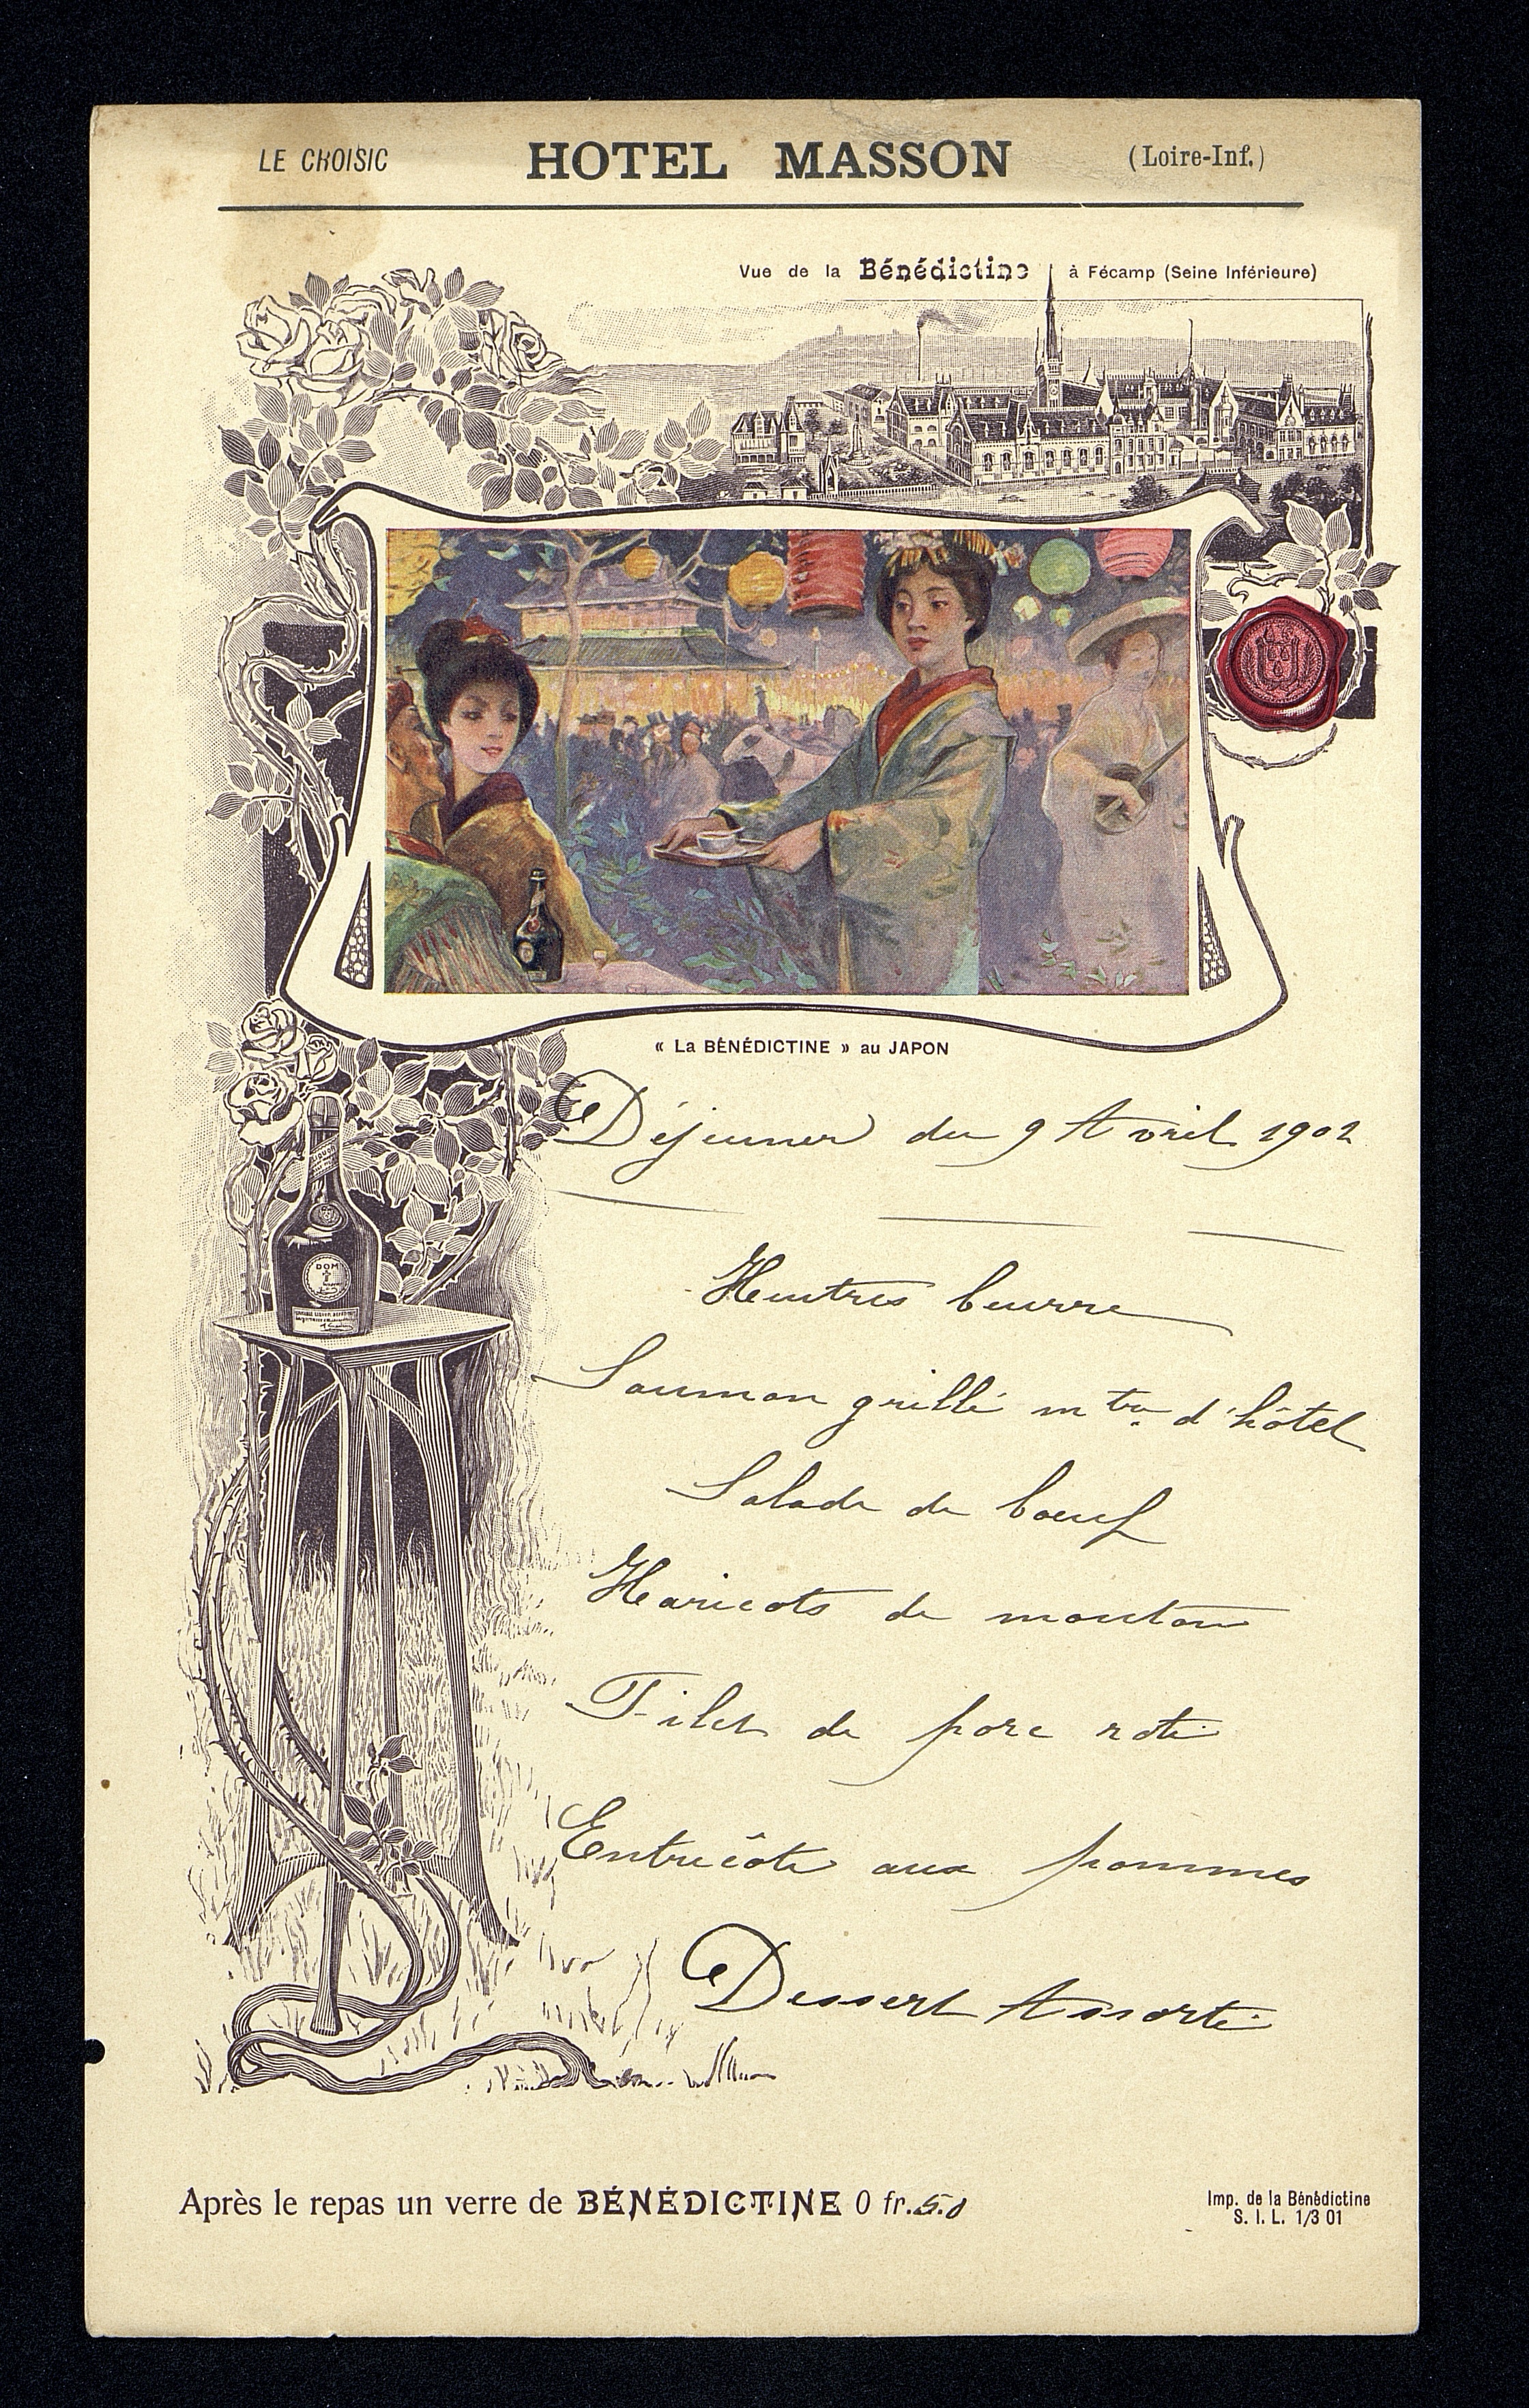 LE CROISIC HOTEL MASSON (Loire-Inf.)
Vue de la Bénédictine à Fécamp (Seine Inférieure)
« La BÉNÉDICTINE » au JAPON
Déjeuner du 9 Avril 1902
Huitres beurre
Saumon grillé m tre d'hôtel
Salade de bœuf
Haricots de mouton
DOM
Filet de porc roti
Entrecôte aux pommes
Dessert Assorti
Après le repas un verre de BÉNÉDICTINE 0 fr. 50
Imp. de la Bénédictine
S. I. L. 1/3 01